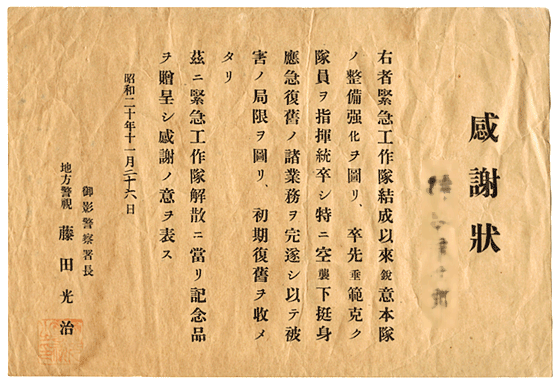 感謝狀
右者緊急工作隊結成以來銳意本隊
ノ整備强化ヲ圖リ、卒先垂範克ク
隊員ヲ指揮統卒シ特ニ空襲下挺身
應急復舊ノ諸業務ヲ完遂シ以テ被
害ノ局限ヲ圖リ、初期復舊ヲ收メ
タリ
茲ニ緊急工作隊解散ニ當リ記念品
ヲ贈呈シ感謝ノ意ヲ表ス
昭和二十年十一月二十六日
御影警察署長
地方警視 藤田光治